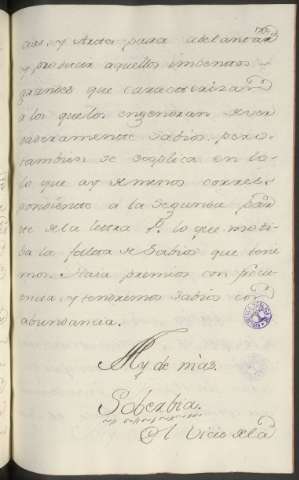 cias, y Artes para adelantar
y producir aquellos inventos
grandes que caracterizan
a los que los engendran de ver
daderamente Sabios. pero
tambien se explica en to-
lo que ay de menos corres
pondiente a la segunda par
te de la letra P. lo que moti
ba la falta de Sabios que tene
mos. Haia premios con
y tendremos Sabios con
abundancia.
Ay de mas.
Soberbia.
El Vicio de la